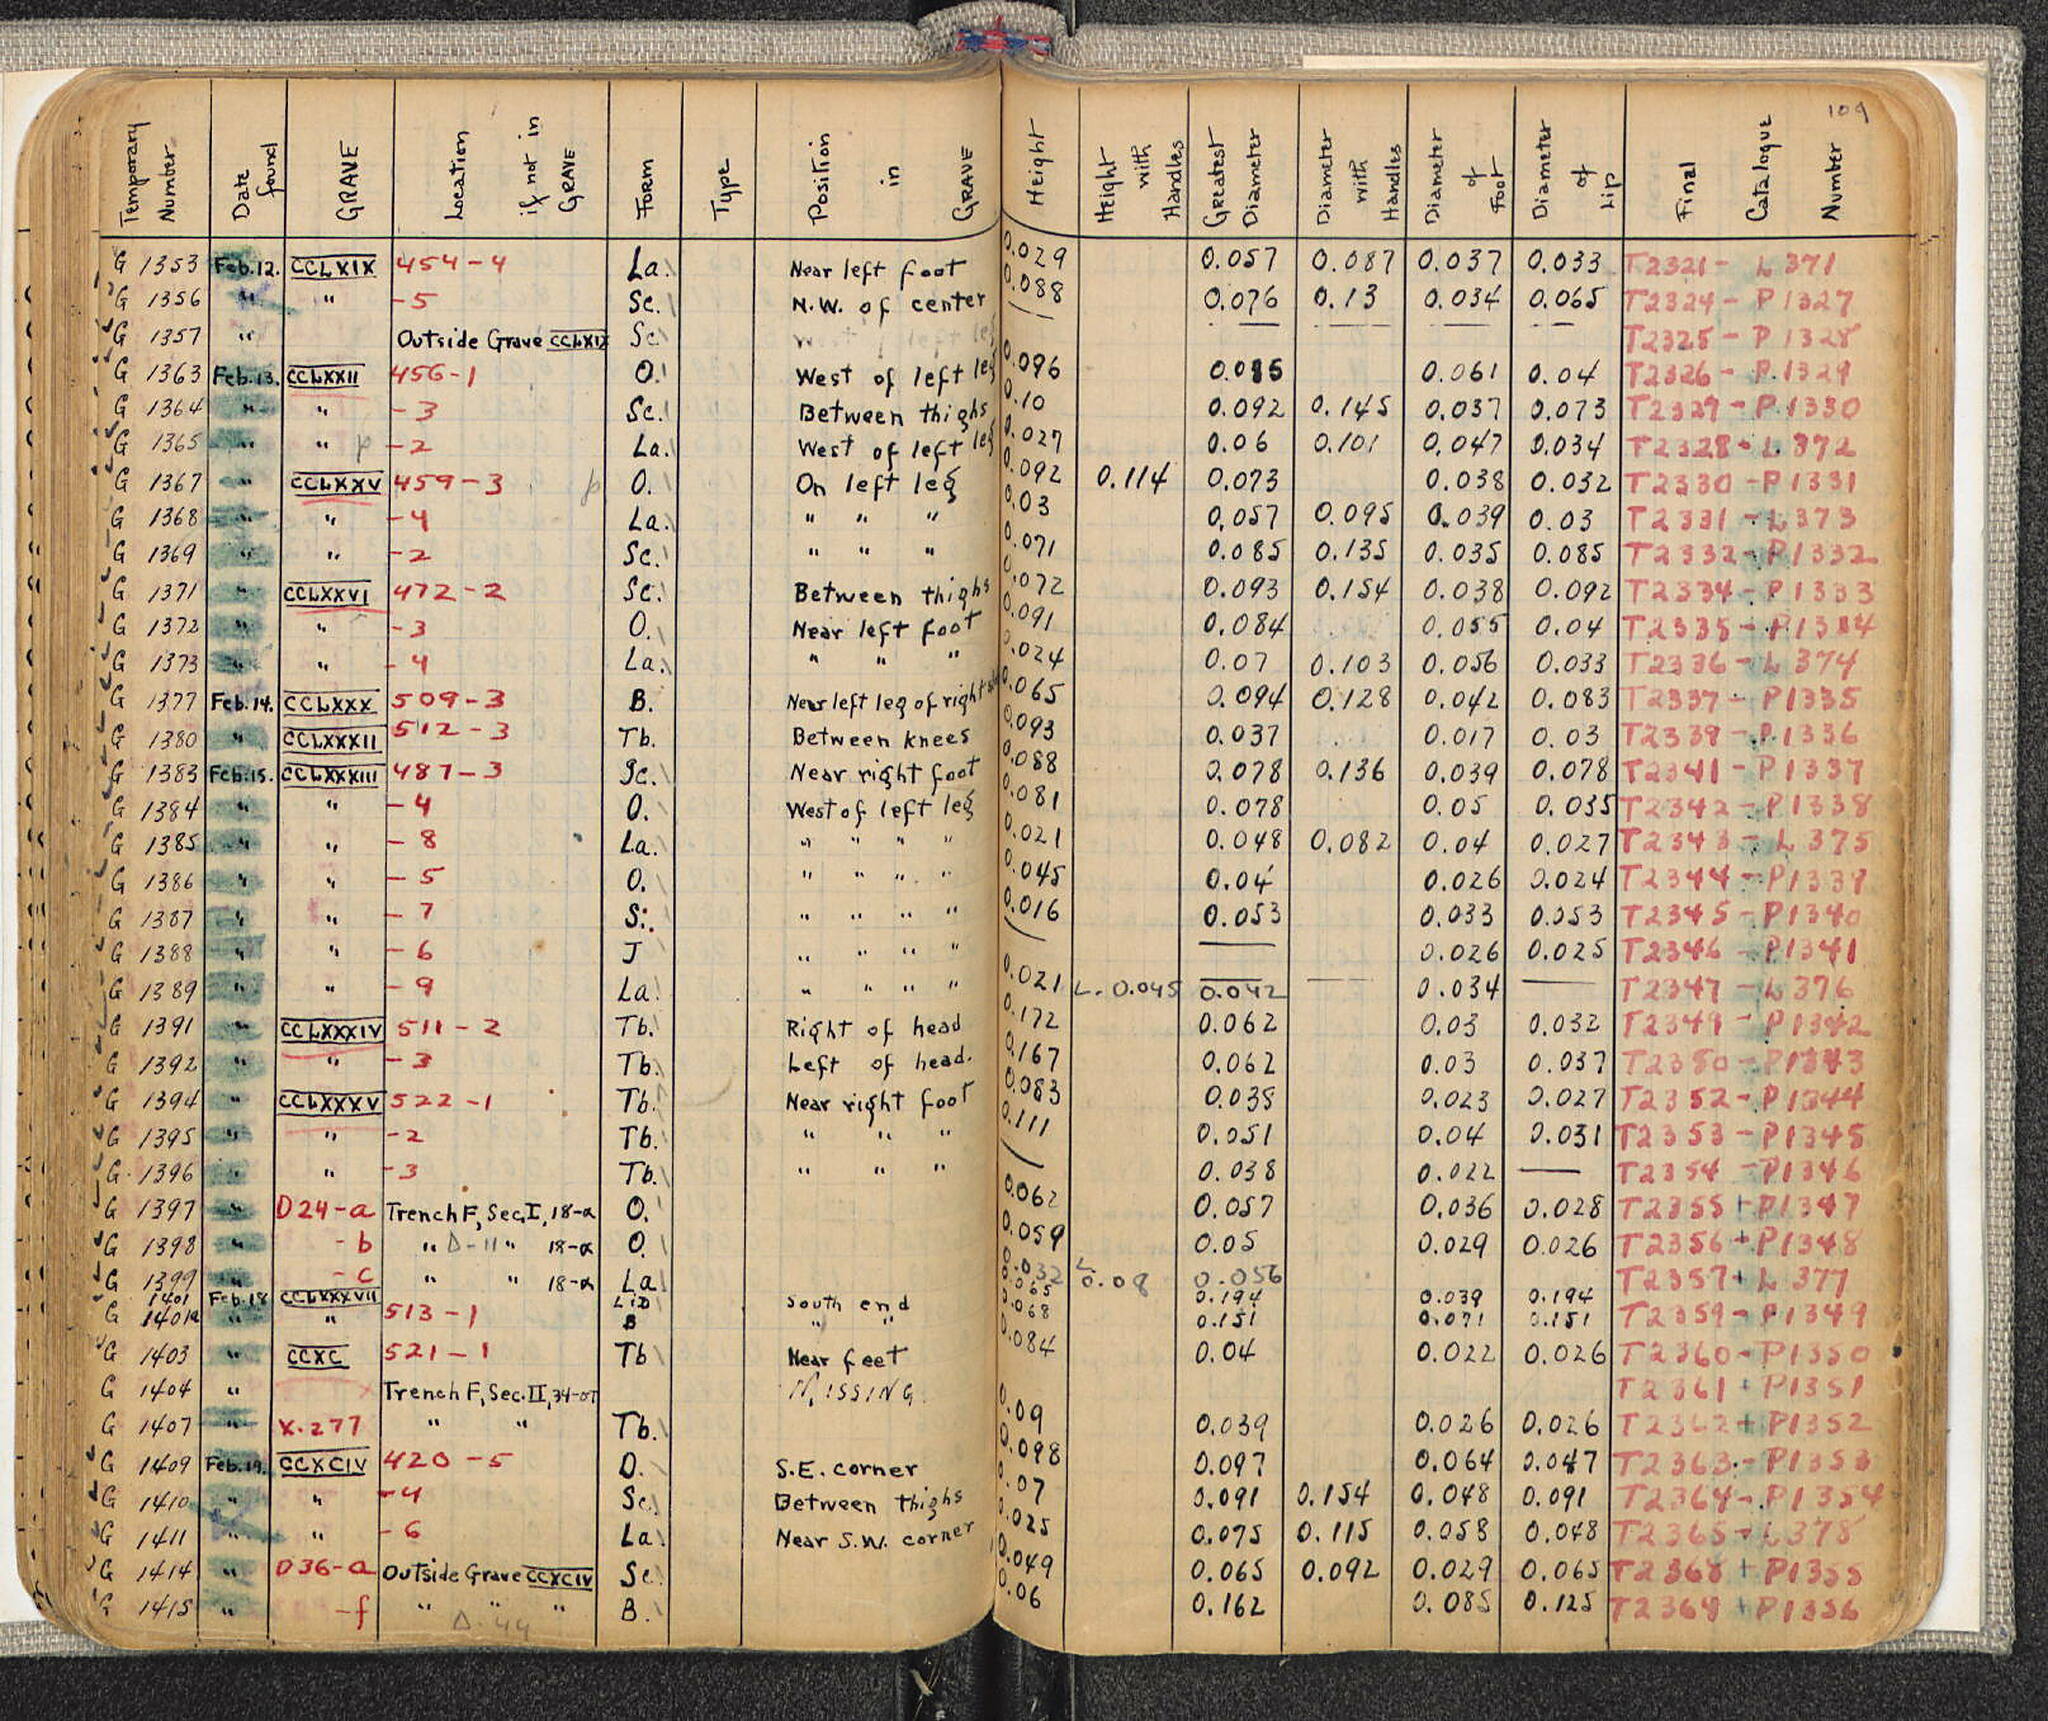 109
Temporary Number | Date found | GRAVE | Location if not in GRAVE | FORM | Type | Position in GRAVE | Height | Height with Handles | Greatest Diameter | Diameter with Handles | Diameter of Foot | Diameter of Lip | Final Catalogue Number
G 1353 Feb.12. CCLXIX 454-4 La. Near left foot 0.029 0.057 0.087 0.037 0.033 T2321- L371
G 1356 " " -5 Sc. N.W. of center 0.088 0.076 0.13 0.034 0.065 T2324- P1327
G 1357 " Outside Grave CCLXIX Sc. West left leg — — — — — T2325- P1328
G 1363 Feb.13. CCLXXII 456-1 O. West of left leg 0.096 0.085 0.061 0.04 T2326- P.1329
G 1364 " " -3 Sc. Between thighs 0.10 0.092 0.145 0.037 0.073 T2327- P.1330
G 1365 " " p -2 La. West of left leg 0.027 0.06 0.101 0.047 0.034 T2328- L.372
G 1367 " CCLXXV 459-3 p O. On left leg 0.092 0.114 0.073 0.038 0.032 T2330-P1331
G 1368 " " -4 La. " " " 0.03 0.057 0.095 0.039 0.03 T2331-L373
G 1369 " " -2 Sc. " " " 0.071 0.085 0.135 0.035 0.085 T2332-P1332
G 1371 " CCLXXVI 472-2 Sc. Between thighs 0.072 0.093 0.154 0.038 0.092 T2334-P1333
G 1372 " " -3 O. Near left foot 0.091 0.084 0.055 0.04 T2335-P1334
G 1373 " " -4 La. " " " 0.024 0.07 0.103 0.056 0.033 T2336-L374
G 1377 Feb.14. CCLXXX 509-3 B. Near left leg of right 0.065 0.094 0.128 0.042 0.083 T2337-P1335
G 1380 " CCLXXXII 512-3 Tb. Between knees 0.093 0.037 0.017 0.03 T2339-P.1336
G 1383 Feb.15. CCLXXXIII 487-3 Sc. Near right foot 0.088 0.078 0.136 0.039 0.078 T2341-P1337
G 1384 " " -4 O. West of left leg 0.081 0.078 0.05 0.035 T2342-P1338
G 1385 " " -8 La. " " " " 0.021 0.048 0.082 0.04 0.027 T2343- L375
G 1386 " " -5 O. " " " " 0.045 0.04 0.026 0.024 T2344-P1339
G 1387 " " -7 S:. " " " " 0.016 0.053 0.033 0.053 T2345-P1340
G 1388 " " -6 J " " " " — — 0.026 0.025 T2346-P1341
G 1389 " " -9 La. " " " " 0.021 L. 0.045 0.042 — 0.034 — T2347-L376
G 1391 " CCLXXXIV 511-2 Tb. Right of head 0.172 0.062 0.03 0.032 T2349-P1342
G 1392 " " -3 Tb. Left of head. 0.167 0.062 0.03 0.037 T2350-P1343
G 1394 " CCLXXXV 522-1 Tb. Near right foot 0.083 0.035 0.023 0.027 T2352-P1344
G 1395 " " -2 Tb. " " " 0.111 0.051 0.04 0.031 T2353-P1345
G 1396 " " -3 Tb. " " " — 0.038 0.022 — T2354-P1346
G 1397 " D24-a Trench F, Sec. I, 18-a O. 0.062 0.057 0.036 0.028 T2355+P1347
G 1398 " -b " Δ-11 " 18-a O. 0.059 0.05 0.029 0.026 T2356+P1348
G 1399 " -c " " 18-a La. 0.032 L 0.08 0.056 T2357+L377
1401 Feb.18 CCLXXXVII LiD South end 0.065 0.194 0.039 0.194
G 1401a " " 513-1 B " " 0.068 0.151 0.071 0.151 T2359-P1349
G 1403 " CCXC 521-1 Tb Near feet 0.084 0.04 0.022 0.026 T2360-P1350
G 1404 " Trench F, Sec. II, 34- MISSING T2361+P1351
G 1407 " X.277 " " Tb. 0.09 0.039 0.026 0.026 T2362+P1352
G 1409 Feb.19. CCXCIV 420-5 O. S.E. corner 0.098 0.097 0.064 0.047 T2363-P1353
G 1410 " " -4 Sc. Between thighs 0.07 0.091 0.154 0.048 0.091 T2364-P1354
G 1411 " " -6 La. Near S.W. corner 0.025 0.075 0.115 0.058 0.048 T2365-L378
G 1414 " D36-a Outside Grave CCXCIV Sc. 0.049 0.065 0.092 0.029 0.065 T2368+P1355
G 1415 " -f " " " B. 0.06 0.162 0.085 0.125 T2369+P1356
Δ-44